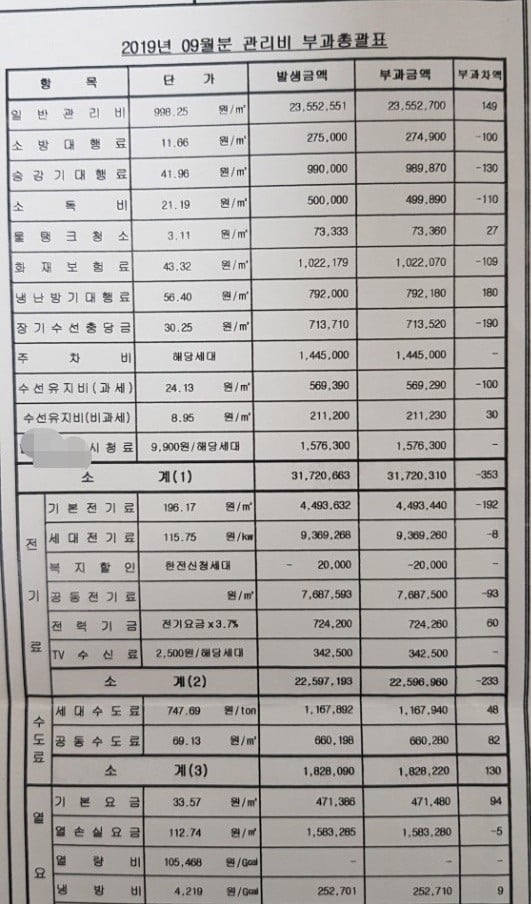 2019년 09월분 관리비 부과총괄표
항 목 단 가 발생금액 부과금액 부과차액
일 반 관 리 비 998.25 원/㎡ 23,552,551 23,552,700 149
소 방 대 행 료 11.66 원/㎡ 275,000 274,900 -100
승 강 기 대 행 료 41.96 원/㎡ 990,000 989,870 -130
소 독 비 21.19 원/㎡ 500,000 499,890 -110
물 탱 크 청 소 3.11 원/㎡ 73,333 73,360 27
화 재 보 험 료 43.32 원/㎡ 1,022,179 1,022,070 -109
냉 난 방 기 대 행 료 56.40 원/㎡ 792,000 792,180 180
장 기 수 선 충 당 금 30.25 원/㎡ 713,710 713,520 -190
주 차 비 해당세대 1,445,000 1,445,000 -
수선유지비(과세) 24.13 원/㎡ 569,390 569,290 -100
수선유지비(비과세) 8.95 원/㎡ 211,200 211,230 30
시 청 료 9,900원/해당세대 1,576,300 1,576,300 -
소 계(1) 31,720,663 31,720,310 -353
전 기 료
기 본 전 기 료 196.17 원/㎡ 4,493,632 4,493,440 -192
세 대 전 기 료 115.75 원/kw 9,369,268 9,369,260 -8
복 지 할 인 한전신청세대 - 20,000 -20,000 -
공 동 전 기 료 원/㎡ 7,687,593 7,687,500 -93
전 력 기 금 전기요금 x 3.7% 724,200 724,260 60
TV 수 신 료 2,500원/해당세대 342,500 342,500 -
소 계(2) 22,597,193 22,596,960 -233
수 도 료
세 대 수 도 료 747.69 원/ton 1,167,892 1,167,940 48
공 동 수 도 료 69.13 원/㎡ 660,198 660,280 82
소 계(3) 1,828,090 1,828,220 130
열 요
기 본 요 금 33.57 원/㎡ 471,386 471,480 94
열 손 실 요 금 112.74 원/㎡ 1,583,285 1,583,280 -5
열 량 비 105,468 원/Gcal - - -
냉 방 비 4,219 원/Gcal 252,701 252,710 9